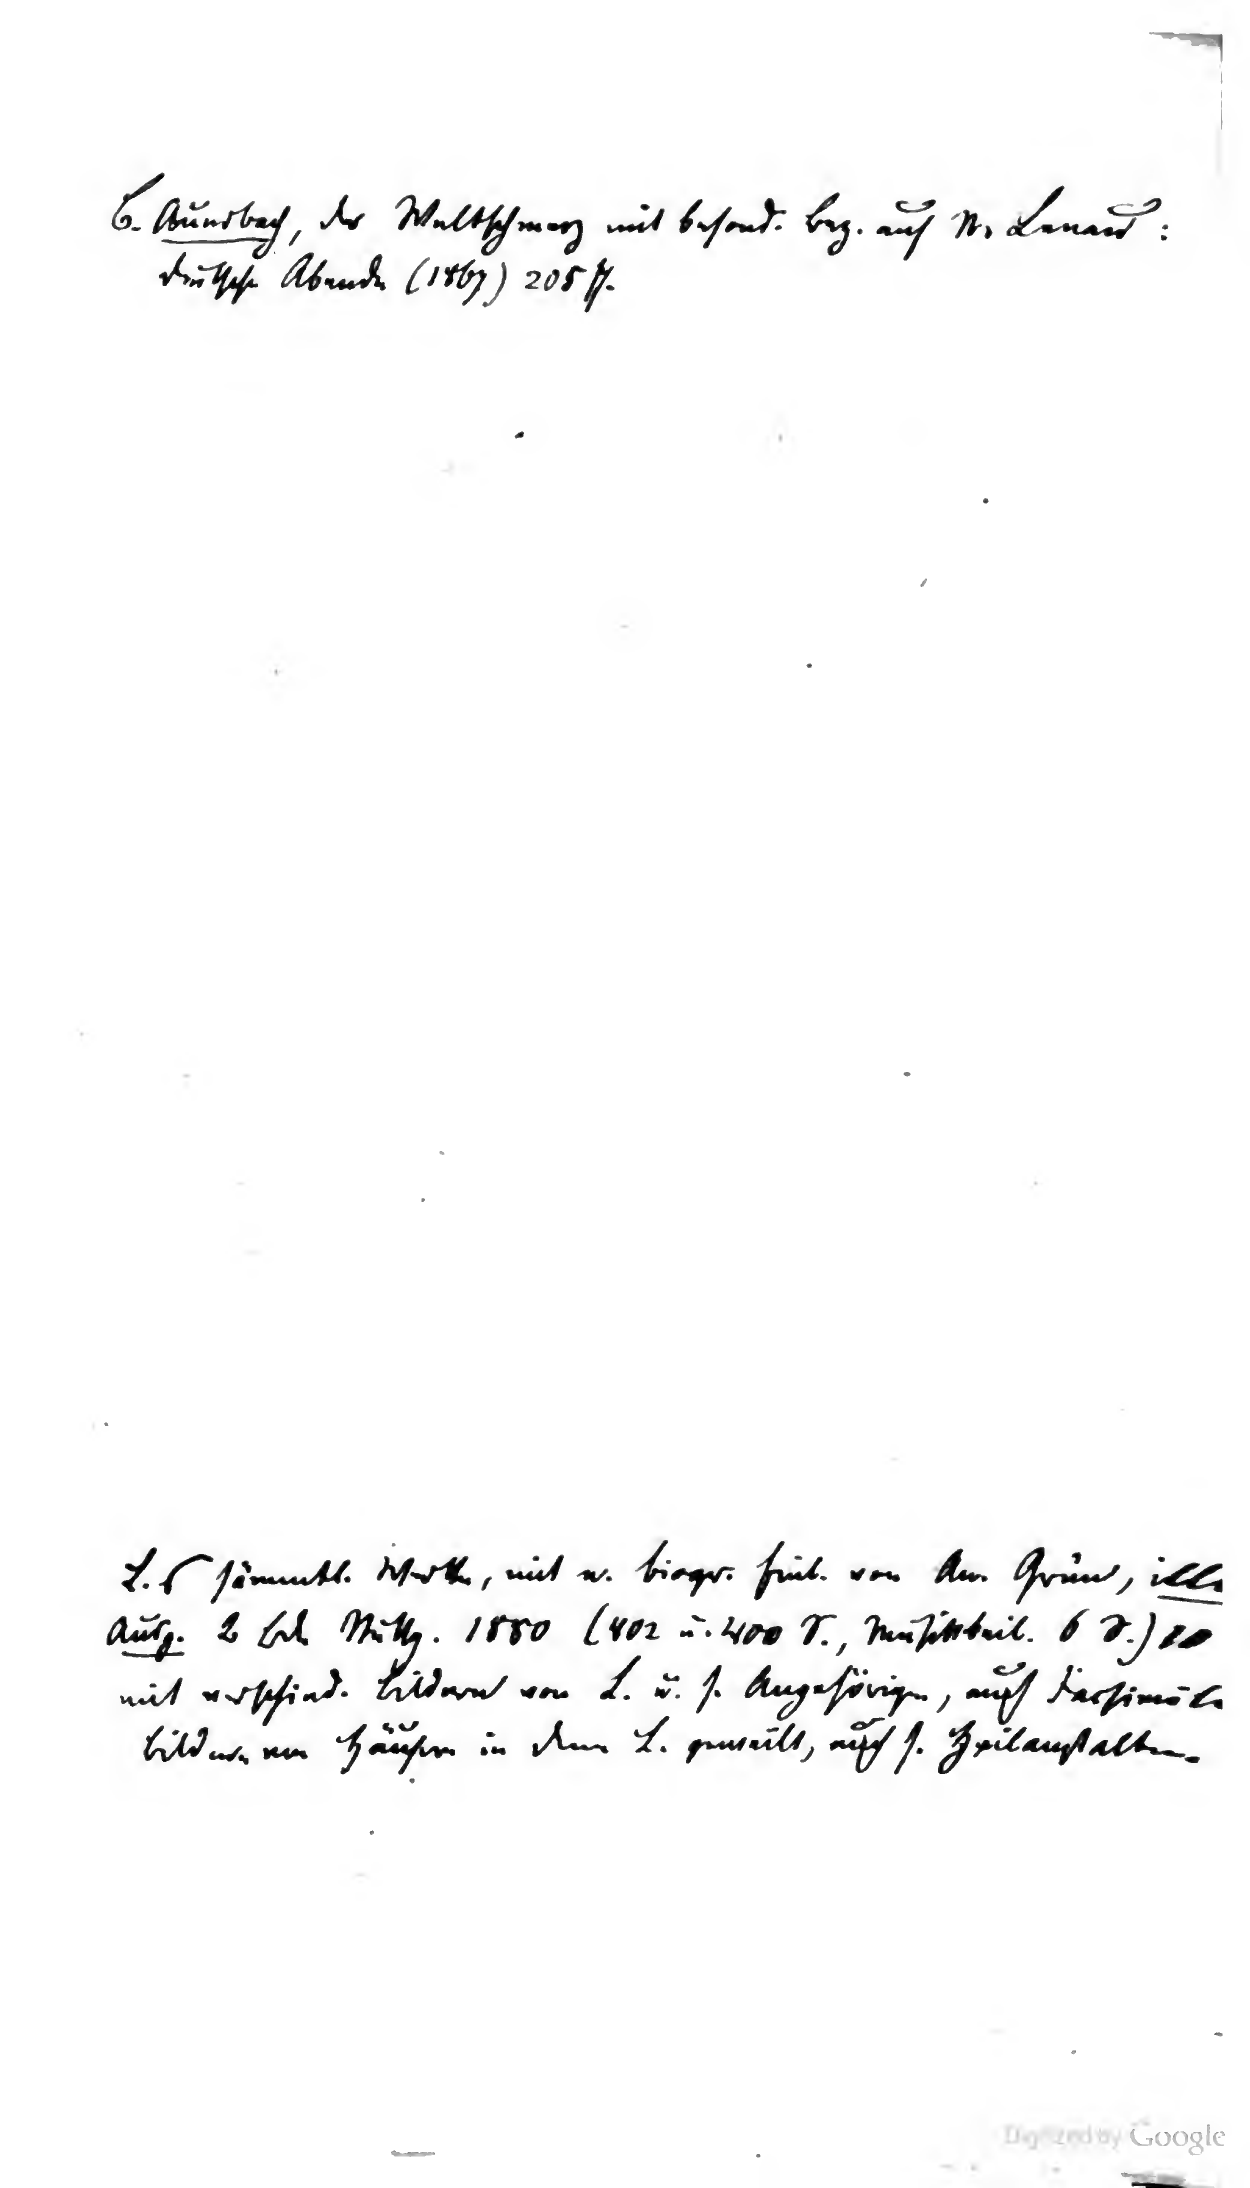 B. Auerbach, der Weltschmerz mit besond. Bez. auf N. Lenau:
deutsche Abende (1867) 205 ff.
L.s sämmtl. Werke, mit e. biogr. Einl. von An. Grün, ill.
Ausg. 2 Bde Stuttg. 1880 (402 u. 400 S., Musikbeil. 6 S.)
mit verschied. Bildern von L. u. s. Angehörigen, auch Facsimile
Bildern von Häusern in denen L. geweilt, auch s. Heilanstalten.
Digitized by Google